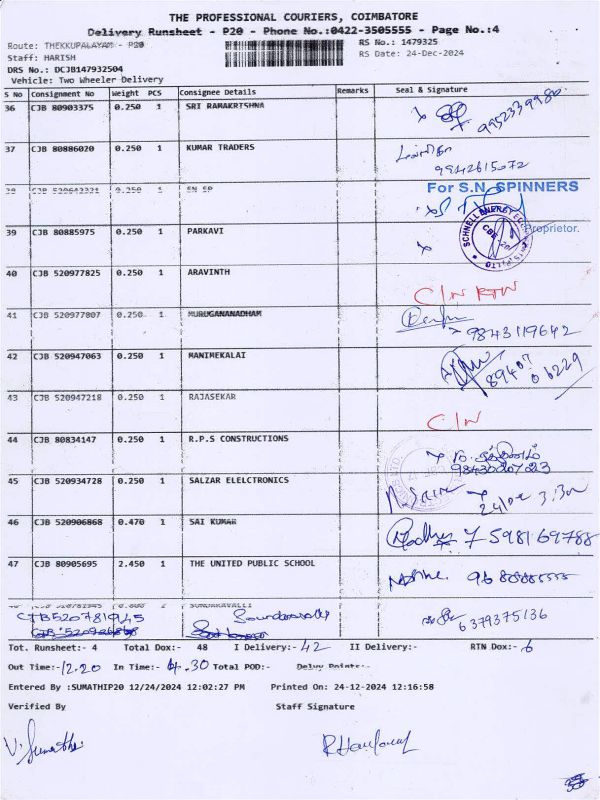 THE PROFESSIONAL COURIERS, COIMBATORE
Delivery Runsheet - P20 - Phone No.:0422-3505555 - Page No.:4
Route: THEKKUPALAYAM - P20
RS No.: 1479325
Staff: HARISH
RS Date: 24-Dec-2024
DRS No.: DCJB147932504
Vehicle: Two Wheeler Delivery
S No Consignment No Weight PCS Consignee Details Remarks Seal & Signature
36 CJB 80903375 0.250 1 SRI RAMAKRISHNA
9952339986
37 CJB 80886020 0.250 1 KUMAR TRADERS
9942615072
38 CJB 520643321 0.250 1 SN SP
For S.N. SPINNERS
Proprietor.
39 CJB 80885975 0.250 1 PARKAVI
40 CJB 520977825 0.250 1 ARAVINTH
C/N RTN
41 CJB 520977807 0.250 1 MURUGANANADHAM
9843119642
42 CJB 520947063 0.250 1 MANIMEKALAI
89407 06229
43 CJB 520947218 0.250 1 RAJASEKAR
C/N
44 CJB 80834147 0.250 1 R.P.S CONSTRUCTIONS
45 CJB 520934728 0.250 1 SALZAR ELELCTRONICS
46 CJB 520906868 0.470 1 SAI KUMAR
7598169788
47 CJB 80905695 2.450 1 THE UNITED PUBLIC SCHOOL
CJB520781945
6379375136
Tot. Runsheet:- 4 Total Dox:- 48 I Delivery:- 42 II Delivery:- RTN Dox:- 6
Out Time:- 12.20 In Time:- 4.30 Total POD:- Delvy Points:-
Entered By :SUMATHIP20 12/24/2024 12:02:27 PM Printed On: 24-12-2024 12:16:58
Verified By Staff Signature